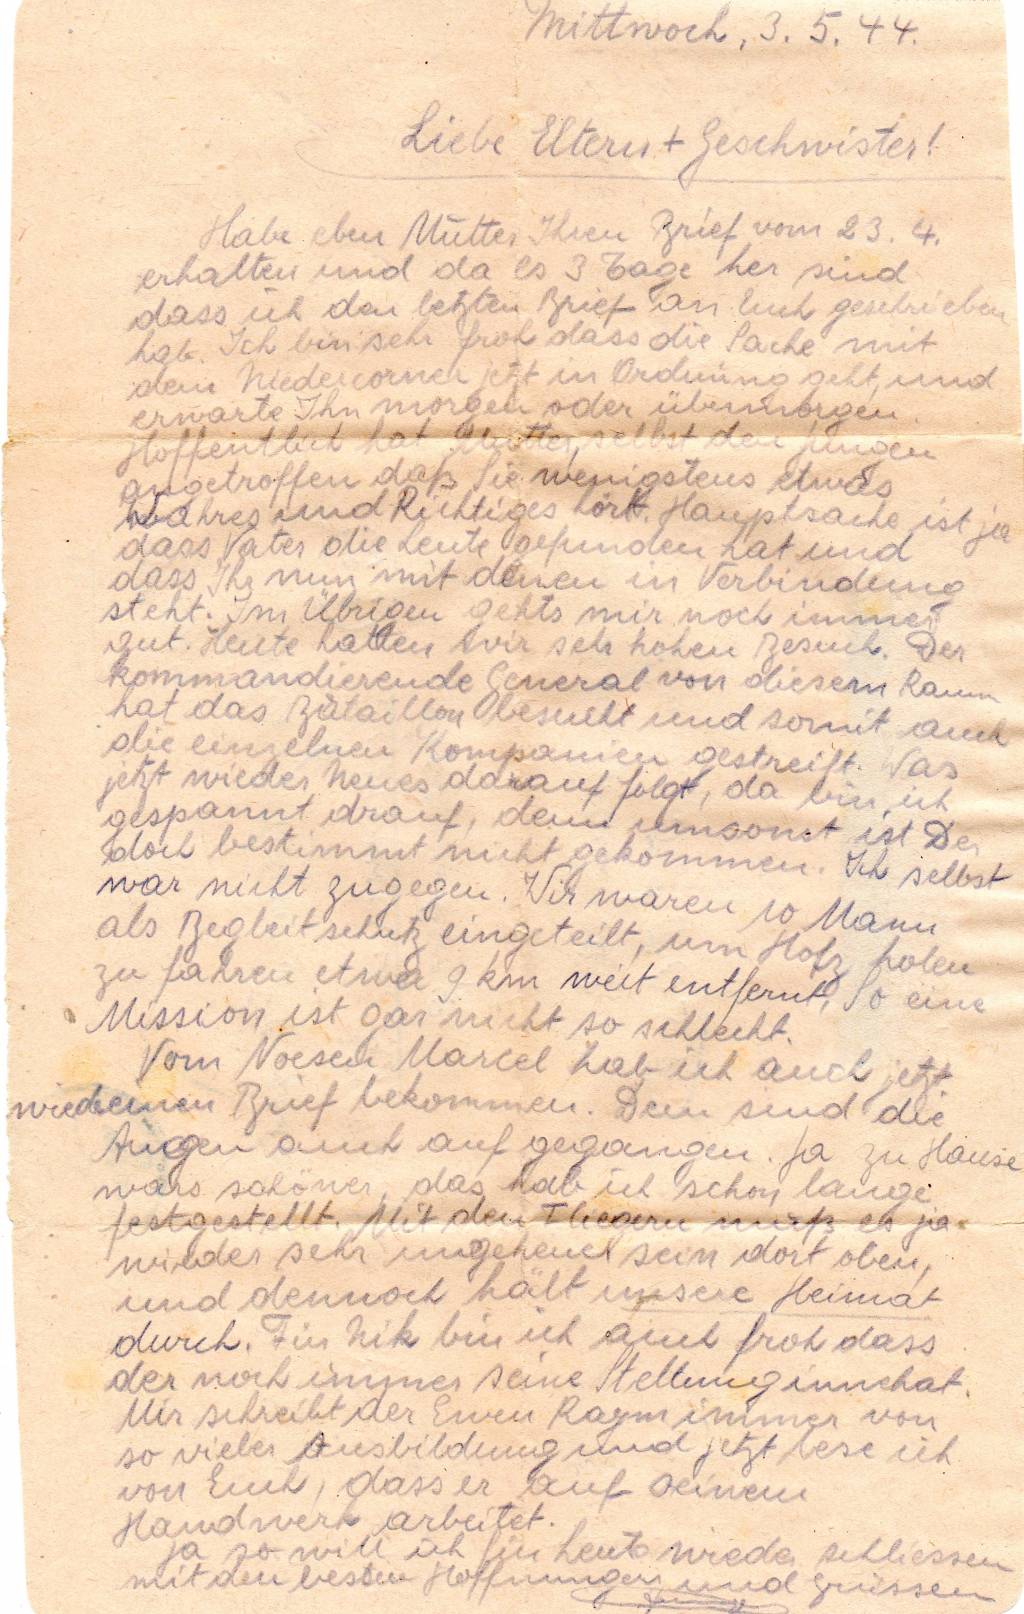 Mittwoch, 3. 5. 44.
Liebe Eltern + Geschwister!
Habe eben Mutter Ihren Brief vom 23. 4.
erhalten und da es 3 Tage her sind
dass ich den letzten Brief an Euch geschrieben
hab. Ich bin sehr froh dass die Sache mit
dem Niedercorner jetzt in Ordnung geht, und
erwarte Ihn morgen oder übermorgen.
Hoffentlich hat Mutter selbst den Jungen
angetroffen daß Sie wenigstens etwas
Wahres und Richtiges hört. Hauptsache ist ja
dass Vater die Leute gefunden hat und
dass Ihr nun mit denen in Verbindung
steht. Im Übrigen gehts mir noch immer
gut. Heute hatten wir sehr hohen Besuch. Der
kommandierende General von diesem Raum
hat das Bataillon besucht und somit auch
die einzelnen Kompanien gestreift. Was
jetzt wieder Neues darauf folgt, da bin ich
gespannt drauf, denn umsonst ist Der
doch bestimmt nicht gekommen. Ich selbst
war nicht zugegen. Wir waren 10 Mann
als Begleitschutz eingeteilt, um Holz holen
zu fahren etwa 9 km weit entfernt. So eine
Mission ist gar nicht so schlecht.
Vom Noesen Marcel hab ich auch jetzt
wieder einen Brief bekommen. Dem sind die
Augen auch auf gegangen. Ja zu Hause
wars schöner, das hab ich schon lange
festgestellt. Mit den Fliegern muß es ja
wieder sehr ungeheuer sein dort oben,
und dennoch hält unsere Heimat
durch. Für Nik bin ich auch froh dass
der noch immer seine Stellung innehat.
Mir schreibt der Ewen Raym immer von
so vieler Ausbildung und jetzt lese ich
von Euch, dass er auf seinem
Handwerk arbeitet.
Ja so will ich für heute wieder schliessen
mit den besten Hoffnungen und Grüssen